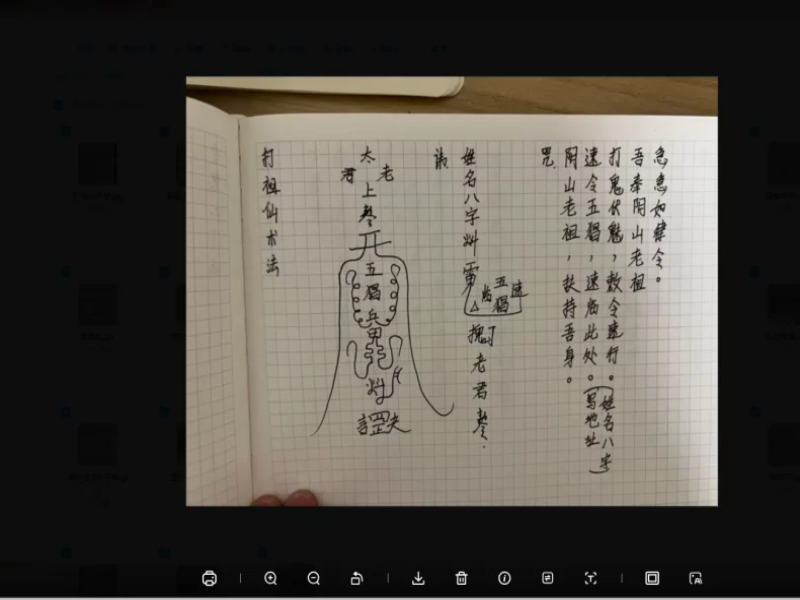 急急如律令。
吾奉阴山老祖
打鬼伏魅，敕令速行。（姓名八字
速令五猖，速临此处。写地址）
阴山老祖，扶持吾身。
咒
姓名八字
五猖
速
老君
太上老君
五猖兵
打祖仙术法